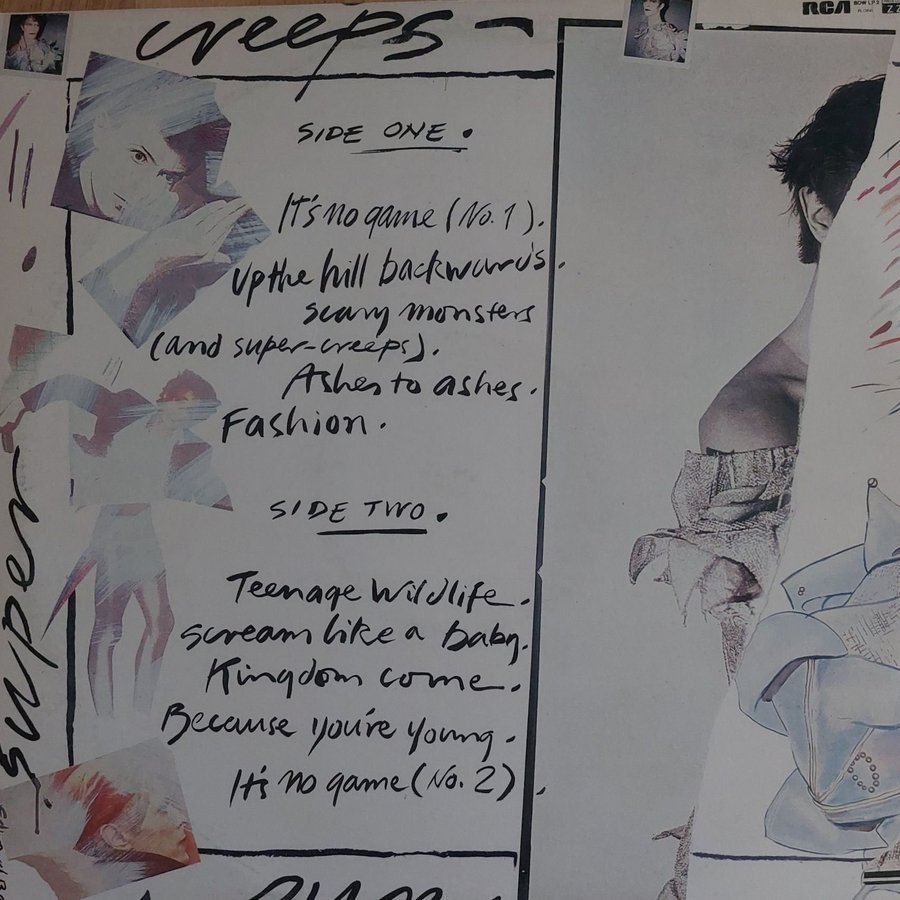 creeps
RCA
BOW LP 2
SIDE ONE.
It's no game (No. 1).
Up the hill backwards.
scary monsters
(and super-creeps).
Ashes to ashes.
Fashion.
SIDE TWO.
Teenage Wildlife.
scream like a baby.
Kingdom come.
Because you're young.
It's no game (No. 2).
super